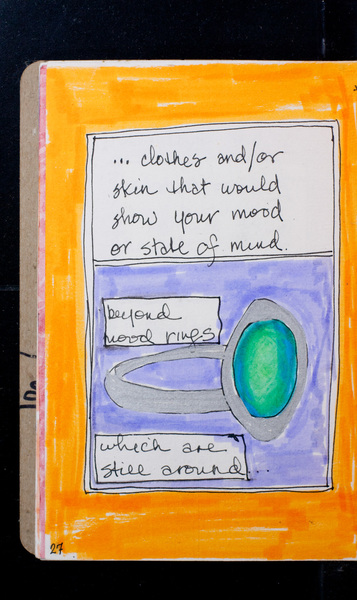 ... clothes and/or
skin that would
show your mood
or state of mind.
beyond
mood rings
which are
still around...
27